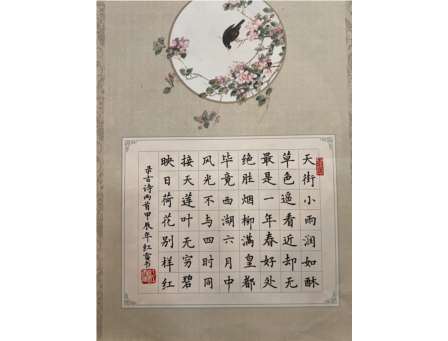 天街小雨润如酥
草色遥看近却无
最是一年春好处
绝胜烟柳满皇都
毕竟西湖六月中
风光不与四时同
接天莲叶无穷碧
映日荷花别样红
录古诗两首甲辰年红雷书